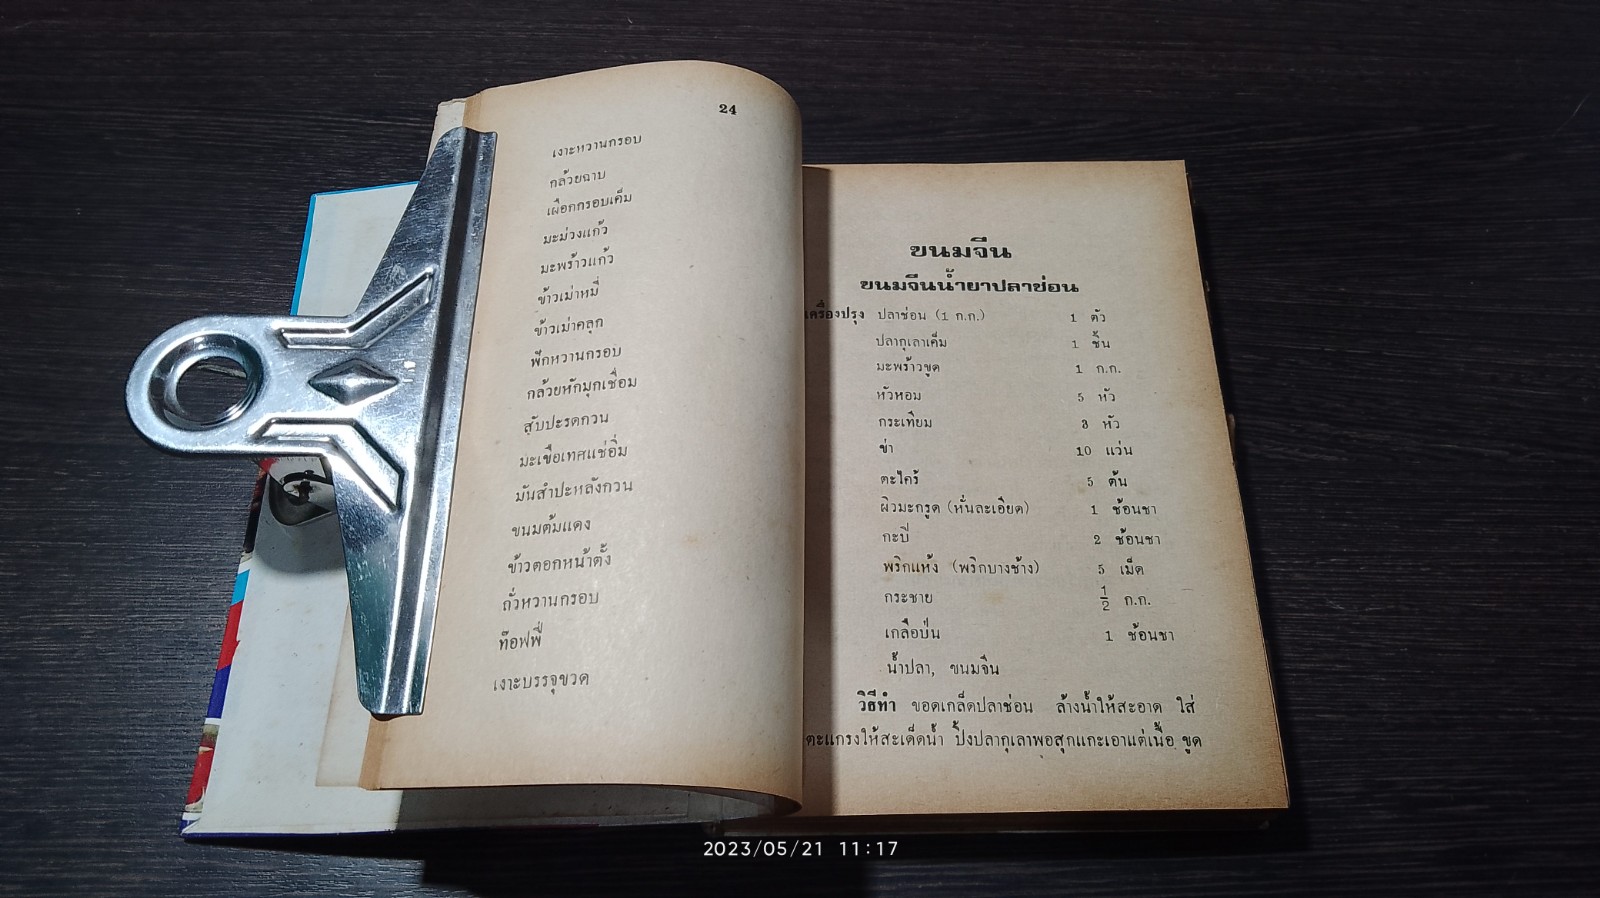 24
เงาะหวานกรอบ
กล้วยฉาบ
เผือกกรอบเค็ม
มะม่วงแก้ว
มะพร้าวแก้ว
ข้าวเม่าหมี่
ข้าวเม่าคลุก
ฟักหวานกรอบ
กล้วยหักมุกเชื่อม
สับปะรดกวน
มะเขือเทศแช่อิ่ม
มันสำปะหลังกวน
ขนมต้มแดง
ข้าวตอกหน้าตั้ง
ถั่วหวานกรอบ
ท๊อฟฟี่
เงาะบรรจุขวด
ขนมจีน
ขนมจีนน้ำยาปลาช่อน
เครื่องปรุง ปลาช่อน (1 ก.ก.) 1 ตัว
ปลากุเลาเค็ม 1 ชิ้น
มะพร้าวขูด 1 ก.ก.
หัวหอม 5 หัว
กระเทียม 3 หัว
ข่า 10 แว่น
ตะไคร้ 5 ต้น
ผิวมะกรูด (หั่นละเอียด) 1 ช้อนชา
กะปี 2 ช้อนชา
พริกแห้ง (พริกบางช้าง) 5 เม็ด
กระชาย 1/2 ก.ก.
เกลือป่น 1 ช้อนชา
น้ำปลา, ขนมจีน
วิธีทำ ขอดเกล็ดปลาช่อน ล้างน้ำให้สะอาด ใส่
ตะแกรงให้สะเด็ดน้ำ ปิ้งปลากุเลาพอสุกแกะเอาแต่เนื้อ ขูด
2023/05/21 11:17